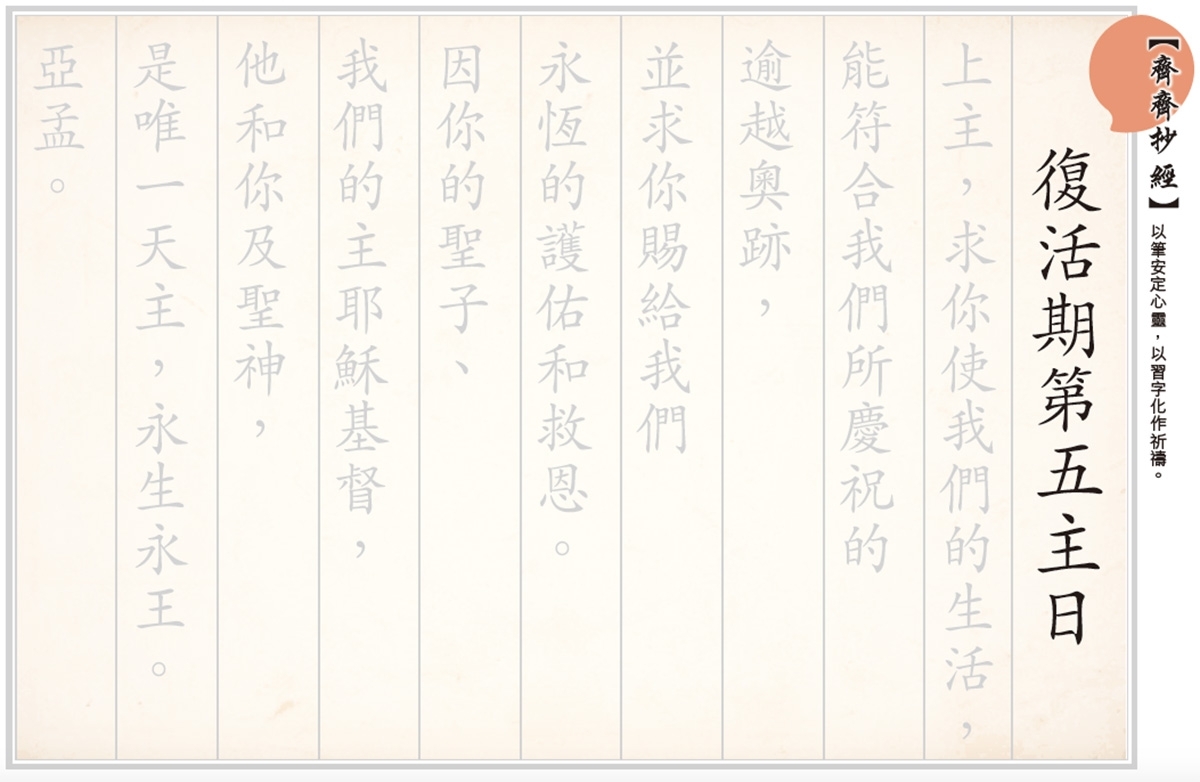 【齊齊抄經】以筆安定心靈，以習字化作祈禱。
復活期第五主日
上主，求你使我們的生活，
能符合我們所慶祝的
逾越奧跡，
並求你賜給我們
永恆的護佑和救恩。
因你的聖子、
我們的主耶穌基督，
他和你及聖神，
是唯一天主，永生永王。
亞孟。